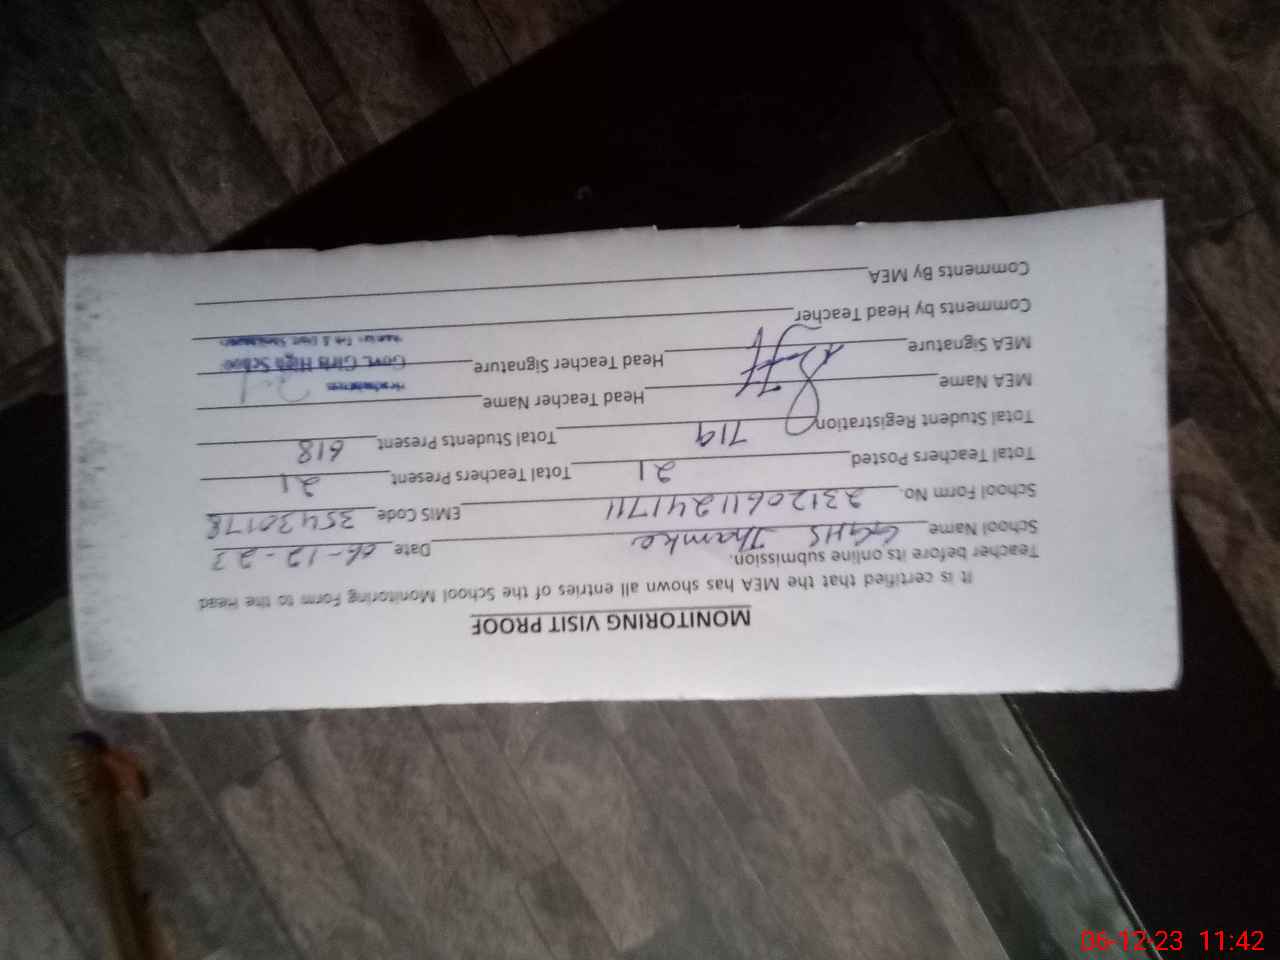 MONITORING VISIT PROOF
It is certified that the MEA has shown all entries of the School Monitoring Form to the Head
Teacher before its online submission.
School Name GGHS Thamke Date 06-12-23
School Form No. 23120611241711 EMIS Code 35430178
Total Teachers Posted 21 Total Teachers Present 21
Total Student Registration 719 Total Students Present 618
MEA Name Head Teacher Name
Headmistress
MEA Signature Head Teacher Signature
Govt. Girls High School
Comments by Head Teacher
Comments By MEA
06-12-23 11:42